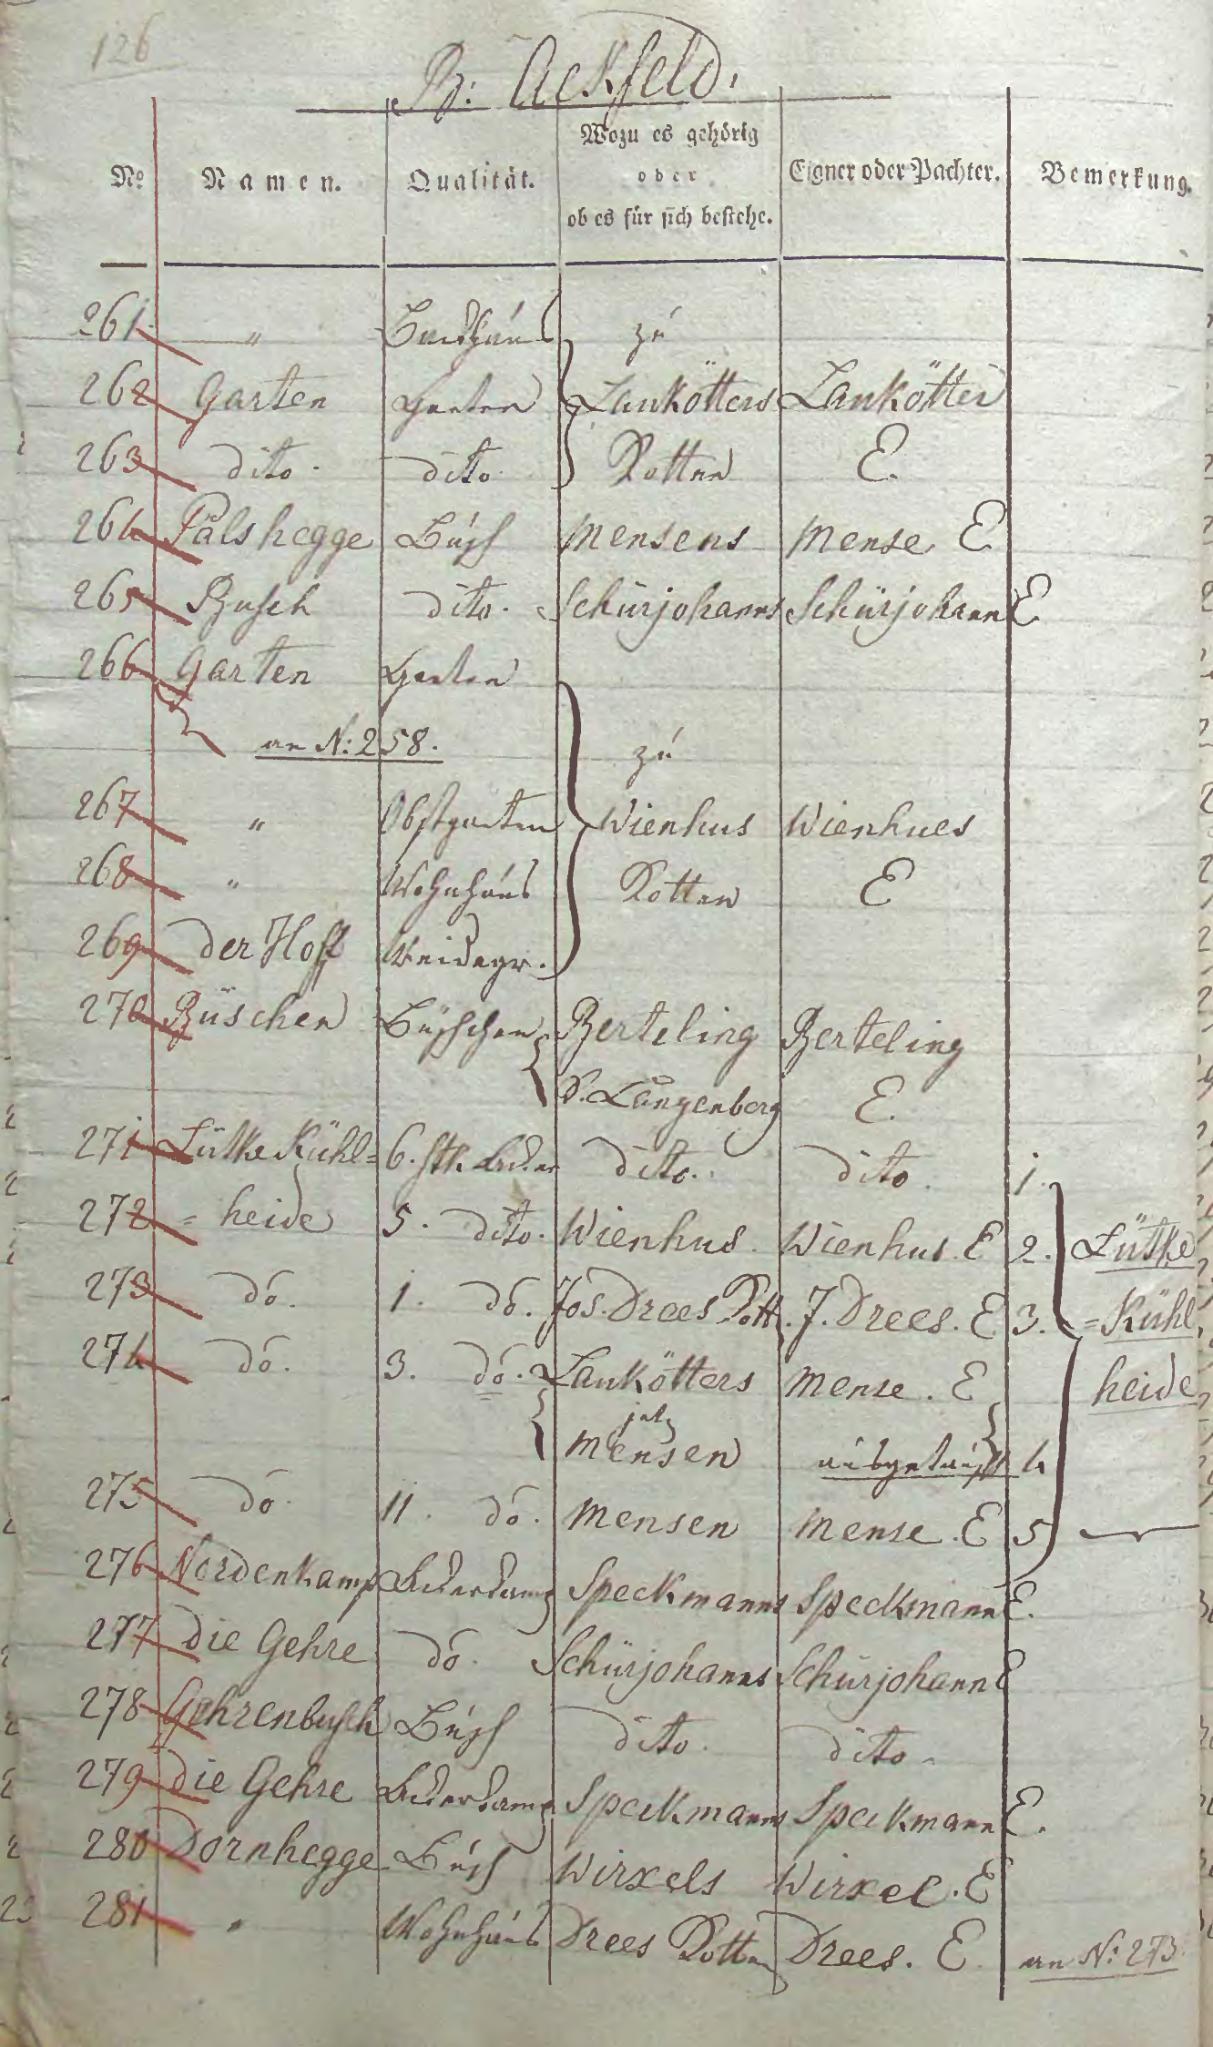 126
B: Ackfeld.
No Namen. Qualität. Wozu es gehörig oder ob es für sich bestehe. Eigner oder Pachter. Bemerkung.
261 " Backhaus zu
262 Garten Garten Lankötters Lankötter
263 dito dito Kotten E.
264 Pälshegge Busch Mensens Mense E
265 Busch dito. Schürjohanns Schürjohann E
266 Garten Garten
an N: 258. zu
267 " Obstgarten Wienhus Wienhues
268 " Wohnhaus Kotten E
269 der Hoff Weidegr.
270 Büschen Büschchen Berteling Berteling
b. Langenberg E.
271 Lütke Kühl= 6. stk. Acker dito. dito. 1.
272 = heide 5. dito. Wienhus. Wienhus. E 2. Lütke
273 do. 1. do. Jos. Drees Kott. J. Drees. E 3. =Kühl
274 do. 3. do. Lankötters Mense. E heide
jetz
Mensen ausgetauscht 4
275 do 11. do. Mensen Mense. E 5
276 Nordenkamp Ackerkamp Speckmanns Speckmann E.
277 die Gehre do. Schürjohanns Schürjohann E
278 Gehrenbusch Busch dito. dito.
279 die Gehre Ackerkamp Speckmanns Speckmann E.
280 Dornhegge Busch Wirxels Wirxel. E
281 " Wohnhaus Drees Kotten Drees. E. an N: 273